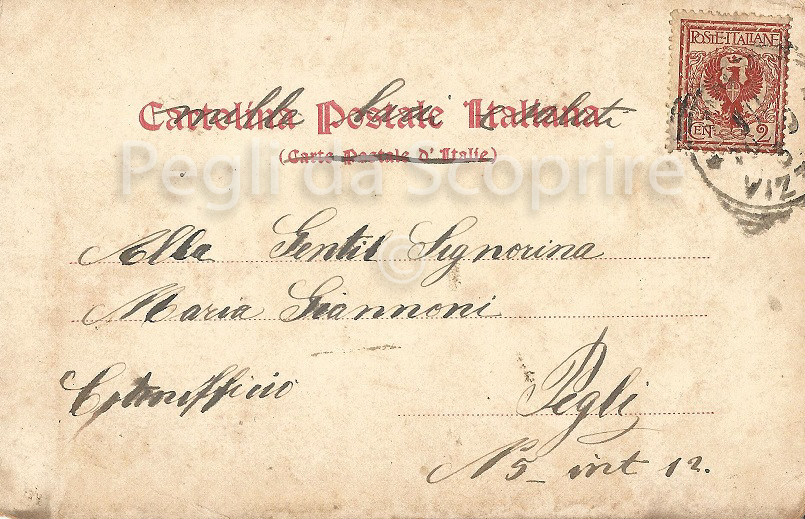 POSTE·ITALIANE
CENT 2
mille baci e saluti
Cartolina Postale Italiana
(Carte Postale d'Italie)
Pegli da Scoprire
©
Alla Gentil Signorina
Maria Giannoni
Cotonifficio
Pegli
N 5 - int 12.